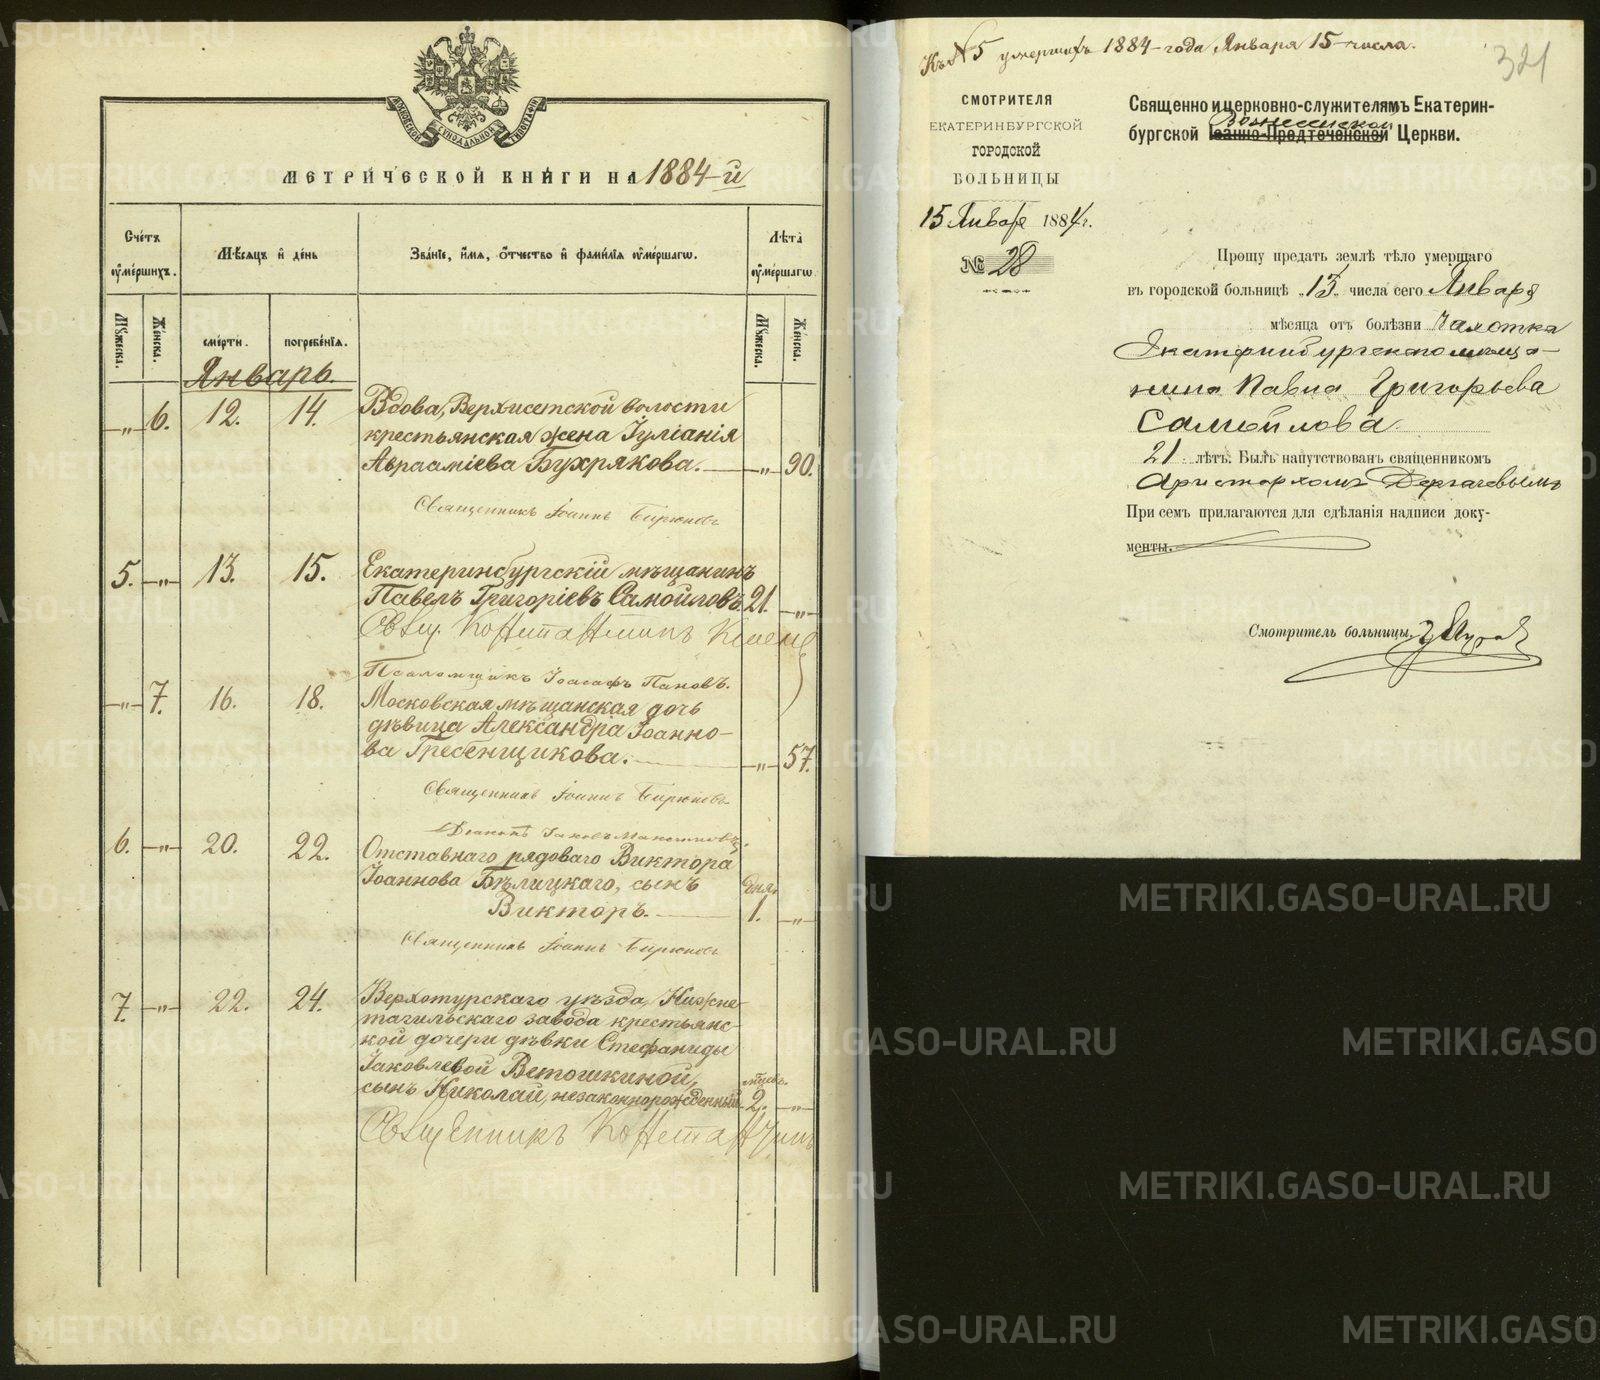 МОСКОВСКОЙ СѴНОДАЛЬНОЙ ТИПОГРАФІИ
МЕТРИ́ЧЕСКОЙ КНИГИ НА 1884-й
Сче́тъ ᲂу҆ме́ршихъ.
Мѣ́сяцъ и҆ де́нь
Зва́нїе, и҆́мя, ѻ҆́тчество и҆ фами́лїя ᲂу҆ме́ршагѡ.
Лѣ́та ᲂу҆ме́ршагѡ
Мꙋ́жеска.
Же́нска.
сме́рти.
погребе́нїя.
Мꙋ́жеска.
Же́нска.
Январь.
„ 6. 12. 14. Вдова, Верхисетской волости
крестьянская жена Іуліанія
Авраамiева Бухрякова. „ 90.
Священникъ Іоаннъ Бирюковъ
5. „ 13. 15. Екатеринбургскій мѣщанинъ
Павелъ Григоріевъ Самойловъ. 21. „
Свящ. Константинъ
Псаломщикъ Іоасафъ Пановъ.
„ 7. 16. 18. Московская мѣщанская дочь
дѣвица Александра Іоанно-
ва Гребенщикова. „ 57.
Священникъ Іоаннъ Бирюковъ
Діаконъ Іаковъ
6. „ 20. 22. Отставнаго рядоваго Виктора
Іоаннова Бѣлицкаго, сынъ дня.
Викторъ. 1. „
Священникъ Іоаннъ Бирюковъ
7. „ 22. 24. Верхотурскаго уѣзда, Нижне-
тагильскаго завода крестьянс-
кой дочери дѣвки Стефаниды
Іаковлевой Ветошкиной, мѣсяц.
сынъ Николай, незаконнорожденный 2. „
Священникъ Константинъ
Къ № 5 умершихъ 1884-года Января 15-числа.
321
СМОТРИТЕЛЯ
ЕКАТЕРИНБУРГСКОЙ
ГОРОДСКОЙ
БОЛЬНИЦЫ
15 Января 1884 г.
№ 28
Священно и церковно-служителямъ Екатерин-
Вознесенской
бургской Іоанно-Предтеченской Церкви.
Прошу предать землѣ тѣло умершаго
въ городской больницѣ „13„ числа сего Января
мѣсяца отъ болѣзни Чахотка
Екатеринбургскаго мѣща-
нина Павла Григорьева
Самойлова
21 лѣтъ. Былъ напутствованъ священникомъ
Аристархомъ Дергачевымъ
При семъ прилагаются для сдѣланія надписи доку-
менты.
Смотритель больницы
METRIKI.GASO-URAL.RU